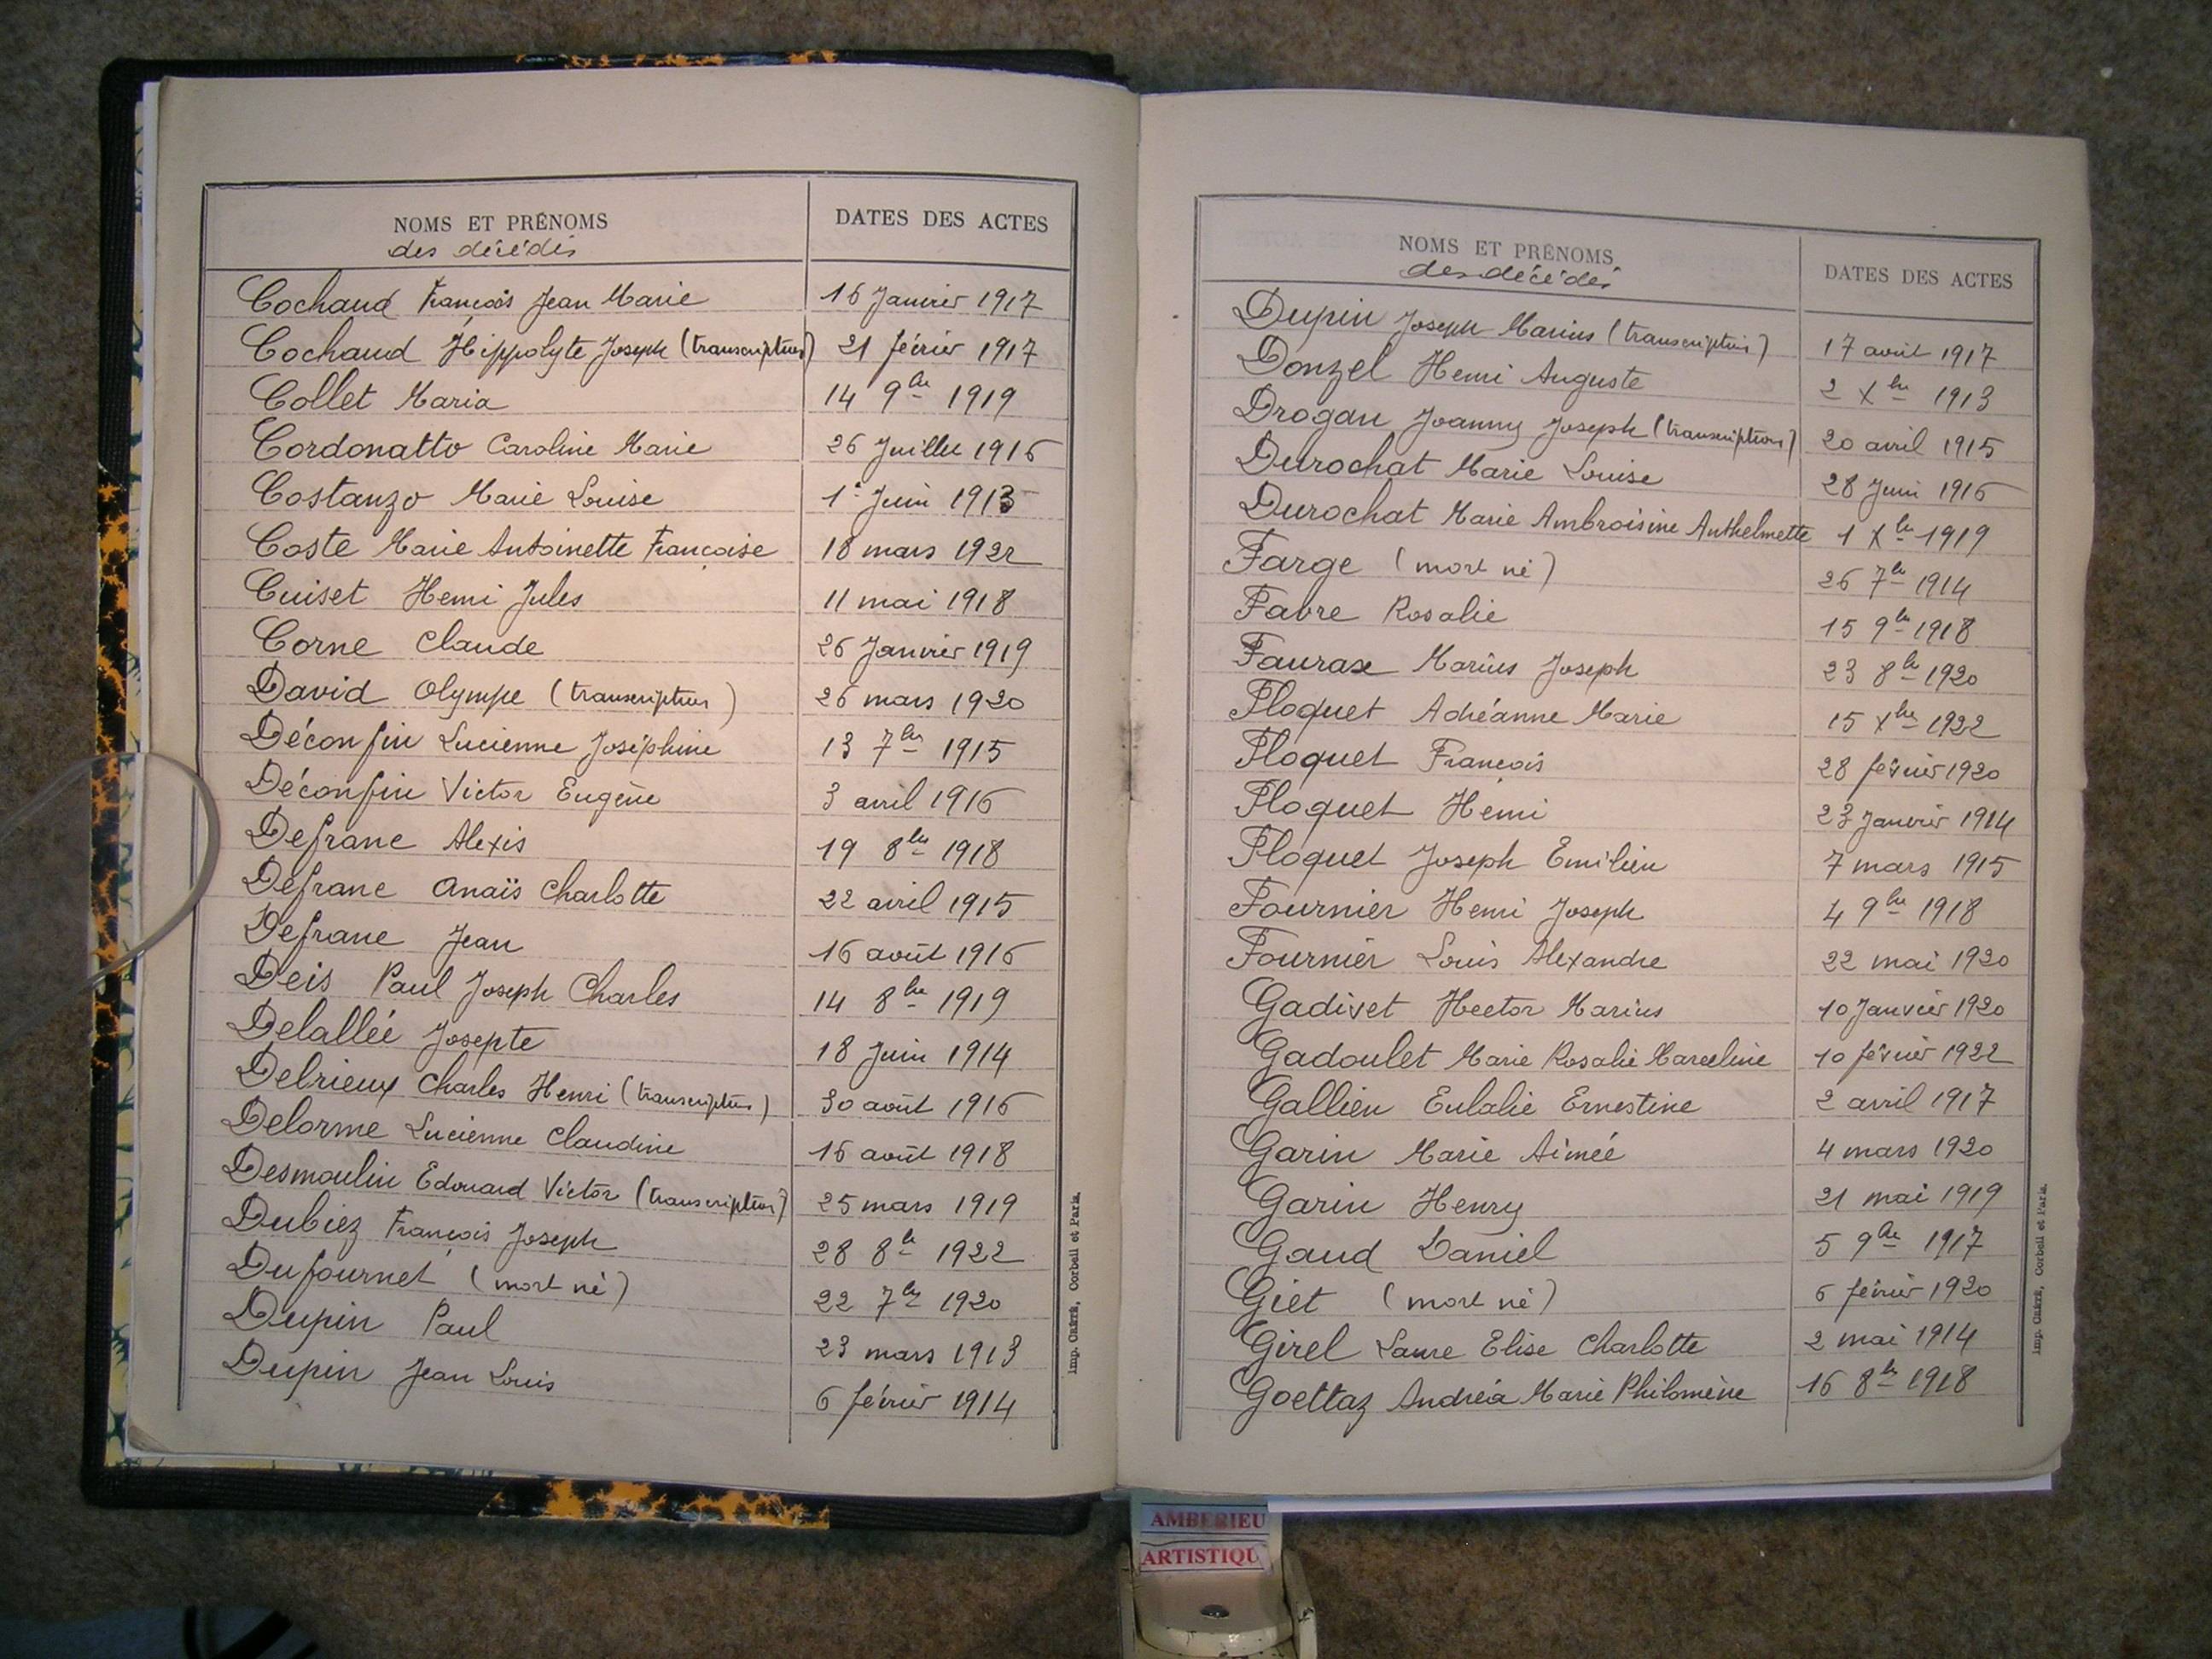 NOMS ET PRÉNOMS DATES DES ACTES
des décédés
Cochaud François Jean Marie 16 Janvier 1917
Cochaud Hippolyte Joseph (transcription) 21 février 1917
Collet Maria 14 9bre 1919
Cordonatto Caroline Marie 26 Juillet 1916
Costanzo Marie Louise 1er Juin 1913
Coste Marie Antoinette Françoise 18 mars 1922
Cuiset Henri Jules 11 mai 1918
Corne Claude 26 Janvier 1919
David Olympe (transcription) 26 mars 1920
Déconfin Lucienne Joséphine 13 7bre 1915
Déconfin Victor Eugène 3 avril 1916
Defranc Alexis 19 8bre 1918
Defranc Anaïs Charlotte 22 avril 1915
Defranc Jean 16 août 1916
Deis Paul Joseph Charles 14 8bre 1919
Delallée Josepte 18 Juin 1914
Delrieux Charles Henri (transcription) 30 août 1916
Delorme Lucienne Claudine 16 août 1918
Desmoulin Edouard Victor (transcription) 25 mars 1919
Dubiez François Joseph 28 8bre 1922
Dufournet (mort né) 22 7bre 1920
Dupin Paul 23 mars 1913
Dupin Jean Louis 6 février 1914
Imp. CRÉTÉ, Corbeil et Paris.
NOMS ET PRÉNOMS DATES DES ACTES
des décédés
Dupin Joseph Marius (transcription) 17 août 1917
Donzel Henri Auguste 2 Xbre 1913
Drogan Joanny Joseph (transcription) 20 avril 1915
Durochat Marie Louise 28 Juin 1916
Durochat Marie Ambroisine Anthelmette 1 Xbre 1919
Farge (mort né) 26 7bre 1914
Favre Rosalie 15 9bre 1918
Faurax Marius Joseph 23 8bre 1920
Floquet Adréanne Marie 15 Xbre 1922
Floquet François 28 février 1920
Floquet Henri 23 Janvier 1914
Floquet Joseph Emilien 7 mars 1915
Fournier Henri Joseph 4 9bre 1918
Fournier Louis Alexandre 22 mai 1920
Gadivet Hector Marius 10 Janvier 1920
Gadoulet Marie Rosalie Marceline 10 février 1922
Gallien Eulalie Ernestine 2 avril 1917
Garin Marie Aimée 4 mars 1920
Garin Henry 21 mai 1919
Gaud Daniel 5 9bre 1917
Giet (mort né) 6 février 1920
Girel Laure Elise Charlotte 2 mai 1914
Goettaz Andréa Marie Philomène 16 8bre 1918
Imp. CRÉTÉ, Corbeil et Paris.
AMBERIEU
ARTISTIQU